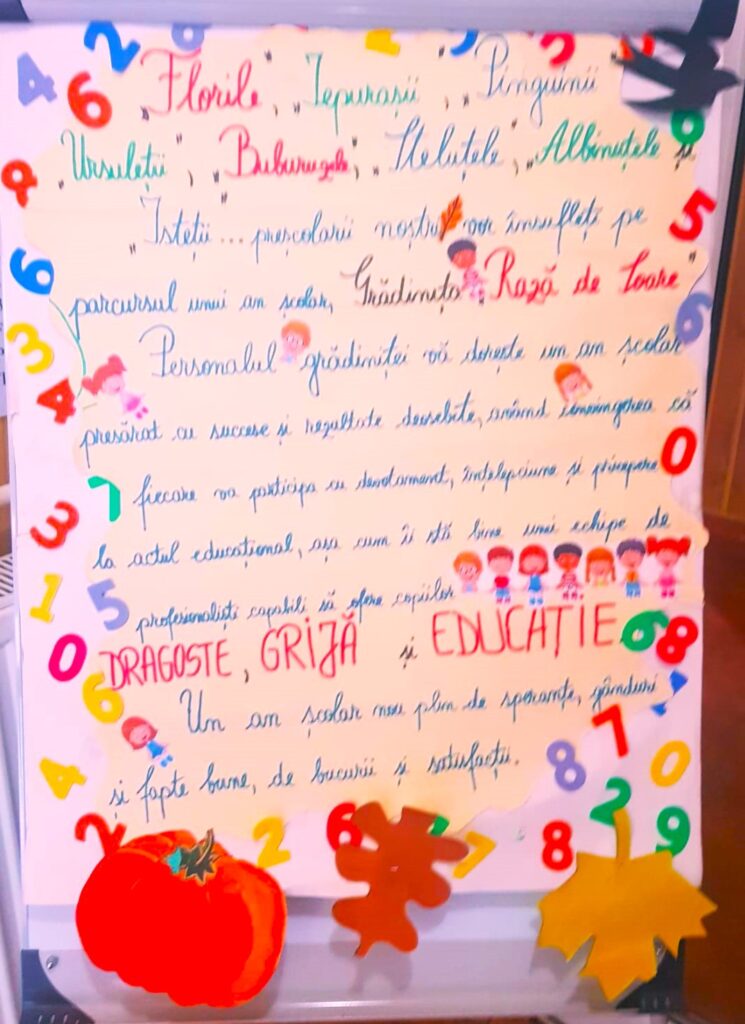 „Florile”, „Iepurașii”, „Pinguinii”
„Ursuleții”, „Buburuzele”, „Steluțele”, „Albinuțele” și
„Isteții”... preșcolarii noștri vor însufleți pe
parcursul unui an școlar, Grădinița „Rază de Soare”
Personalul grădiniței vă dorește un an școlar
presărat cu succese și rezultate deosebite, având convingerea că
fiecare va participa cu devotament, înțelepciune și pricepere
la actul educațional, așa cum îi stă bine unei echipe de
profesioniști capabili să ofere copiilor
DRAGOSTE, GRIJĂ și EDUCAȚIE
Un an școlar nou plin de speranțe, gânduri
și fapte bune, de bucurii și satisfacții.